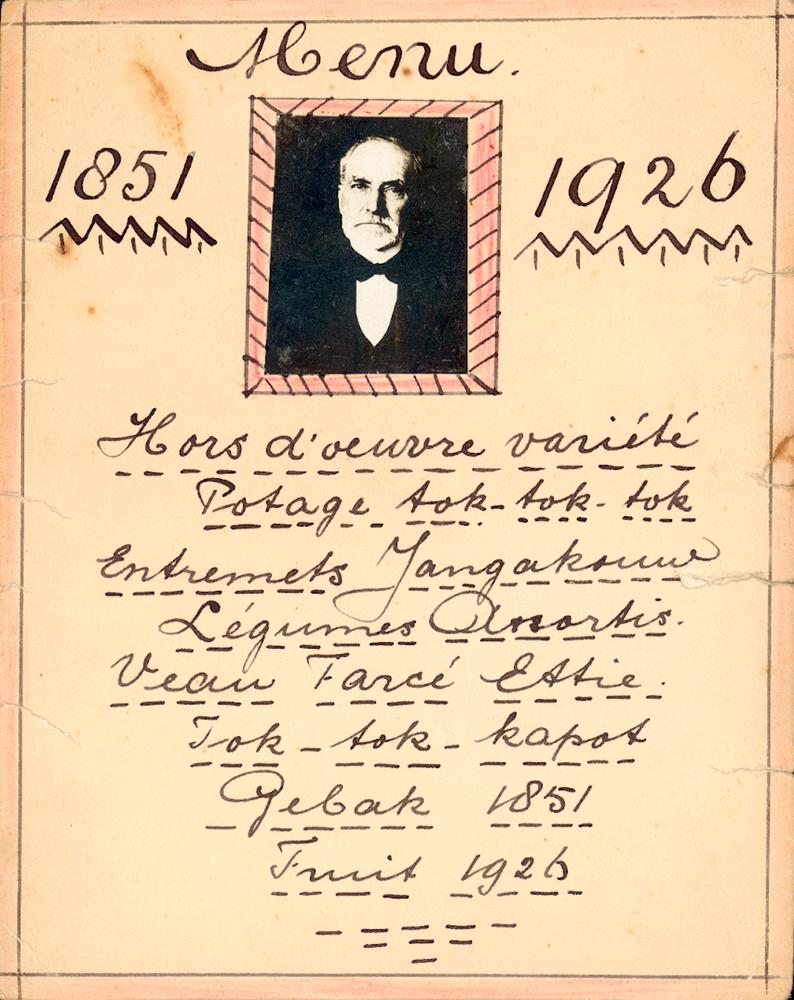 Menu.
1851
1926
Hors d'oeuvre variété
Potage tok-tok-tok
Entremets Jangakouw
Légumes Assortis.
Veau Farcé Ettie.
Tok-tok-kapot
Gebak 1851
Fruit 1926